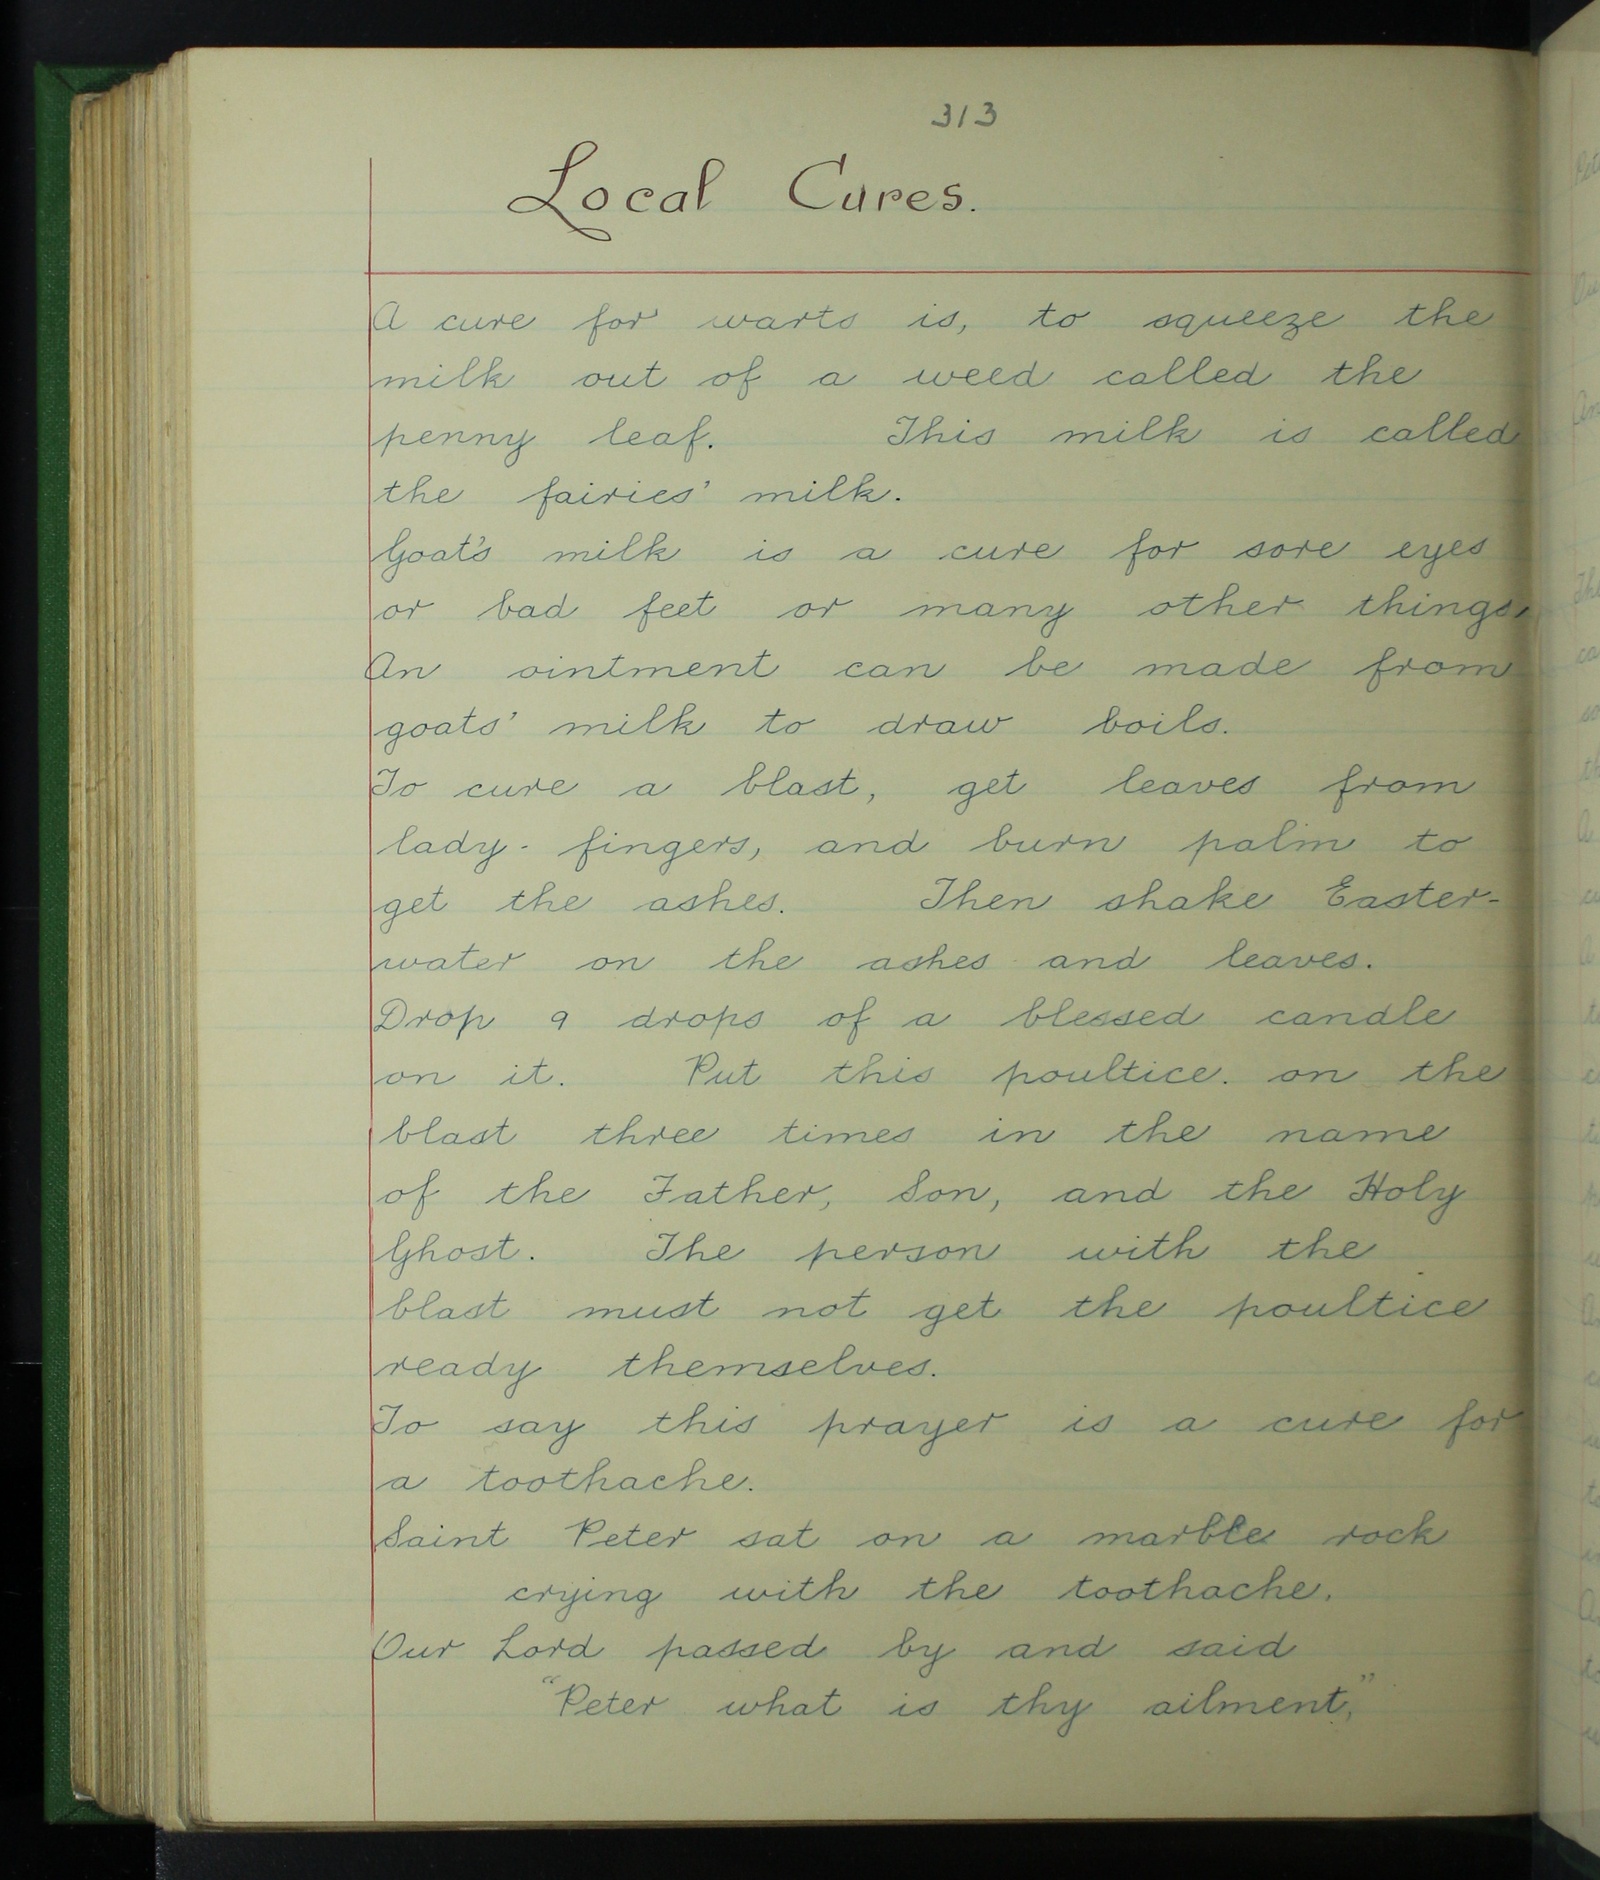 313
Local Cures.
A cure for warts is, to squeeze the
milk out of a weed called the
penny leaf. This milk is called
the fairies' milk.
Goat's milk is a cure for sore eyes
or bad feet or many other things.
An ointment can be made from
goats' milk to draw boils.
To cure a blast, get leaves from
lady-fingers, and burn palm to
get the ashes. Then shake Easter-
water on the ashes and leaves.
Drop 9 drops of a blessed candle
on it. Put this poultice. on the
blast three times in the name
of the Father, Son, and the Holy
Ghost. The person with the
blast must not get the poultice
ready themselves.
To say this prayer is a cure for
a toothache.
Saint Peter sat on a marble rock
crying with the toothache.
Our Lord passed by and said
"Peter what is thy ailment,"